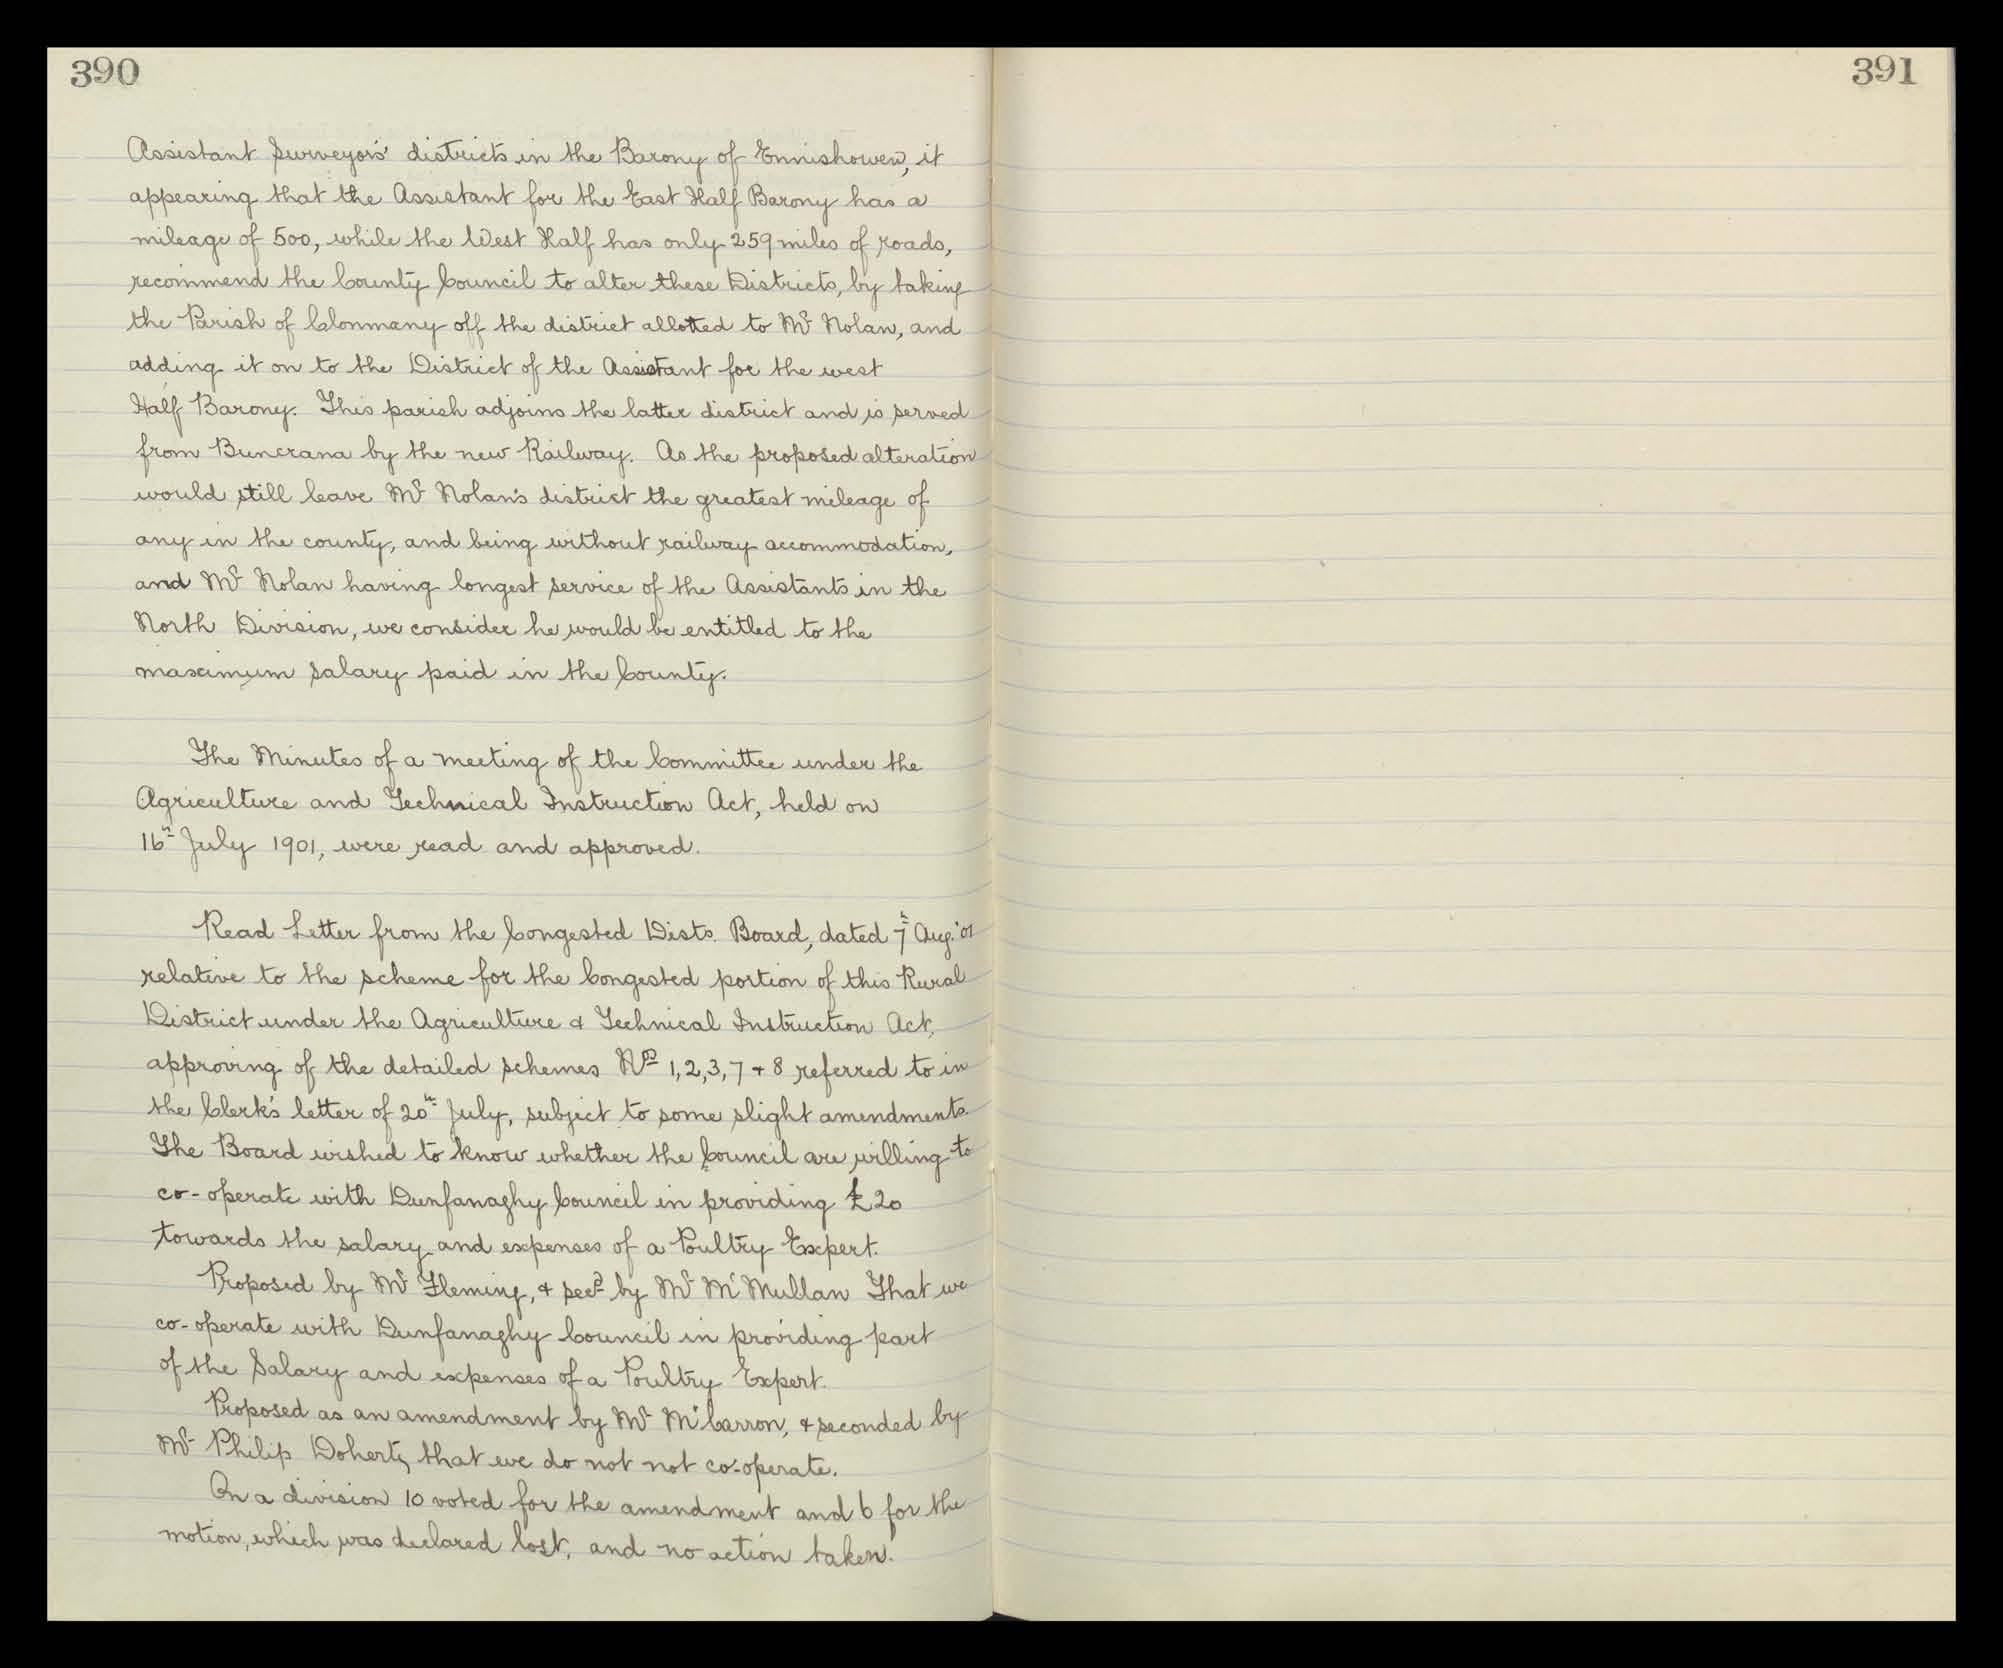 390
Assistant Surveyors' districts in the Barony of Ennishowen, it
appearing that the Assistant for the East Half Barony has a
mileage of 500, while the West Half has only 259 miles of roads,
recommend the County Council to alter these Districts, by taking
the Parish of Clonmany off the district allotted to Mr Nolan, and
adding it on to the District of the Assistant for the west
Half Barony. This parish adjoins the latter district and is served
from Buncrana by the new Railway. As the proposed alteration
would still leave Mr Nolan's district the greatest mileage of
any in the county, and being without railway accommodation,
and Mr Nolan having longest service of the Assistants in the
North Division, we consider he would be entitled to the
maximum salary paid in the County.
The Minutes of a meeting of the Committee under the
Agriculture and Technical Instruction Act, held on
16th July 1901, were read and approved.
Read Letter from the Congested Dists. Board, dated 7th Aug. '01
relative to the scheme for the Congested portion of this Rural
District under the Agriculture & Technical Instruction Act,
approving of the detailed schemes Nos 1, 2, 3, 7 & 8 referred to in
the Clerk's letter of 20th July, subject to some slight amendments.
The Board wished to know whether the Council are willing to
co-operate with Dunfanaghy Council in providing £20
towards the salary and expenses of a Poultry Expert.
Proposed by Mr Fleming, & secd by Mr McMullan That we
co-operate with Dunfanaghy Council in providing part
of the Salary and expenses of a Poultry Expert.
Proposed as an amendment by Mr McCarron, & seconded by
Mr Philip Doherty that we do not not co-operate.
On a division 10 voted for the amendment and 6 for the
motion, which was declared lost, and no action taken.
391